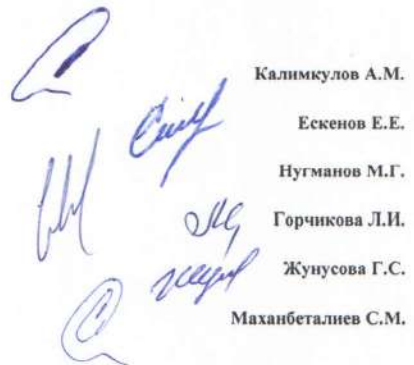 Калимкулов А.М.
Ескенов Е.Е.
Нугманов М.Г.
Горчикова Л.И.
Жунусова Г.С.
Маханбеталиев С.М.